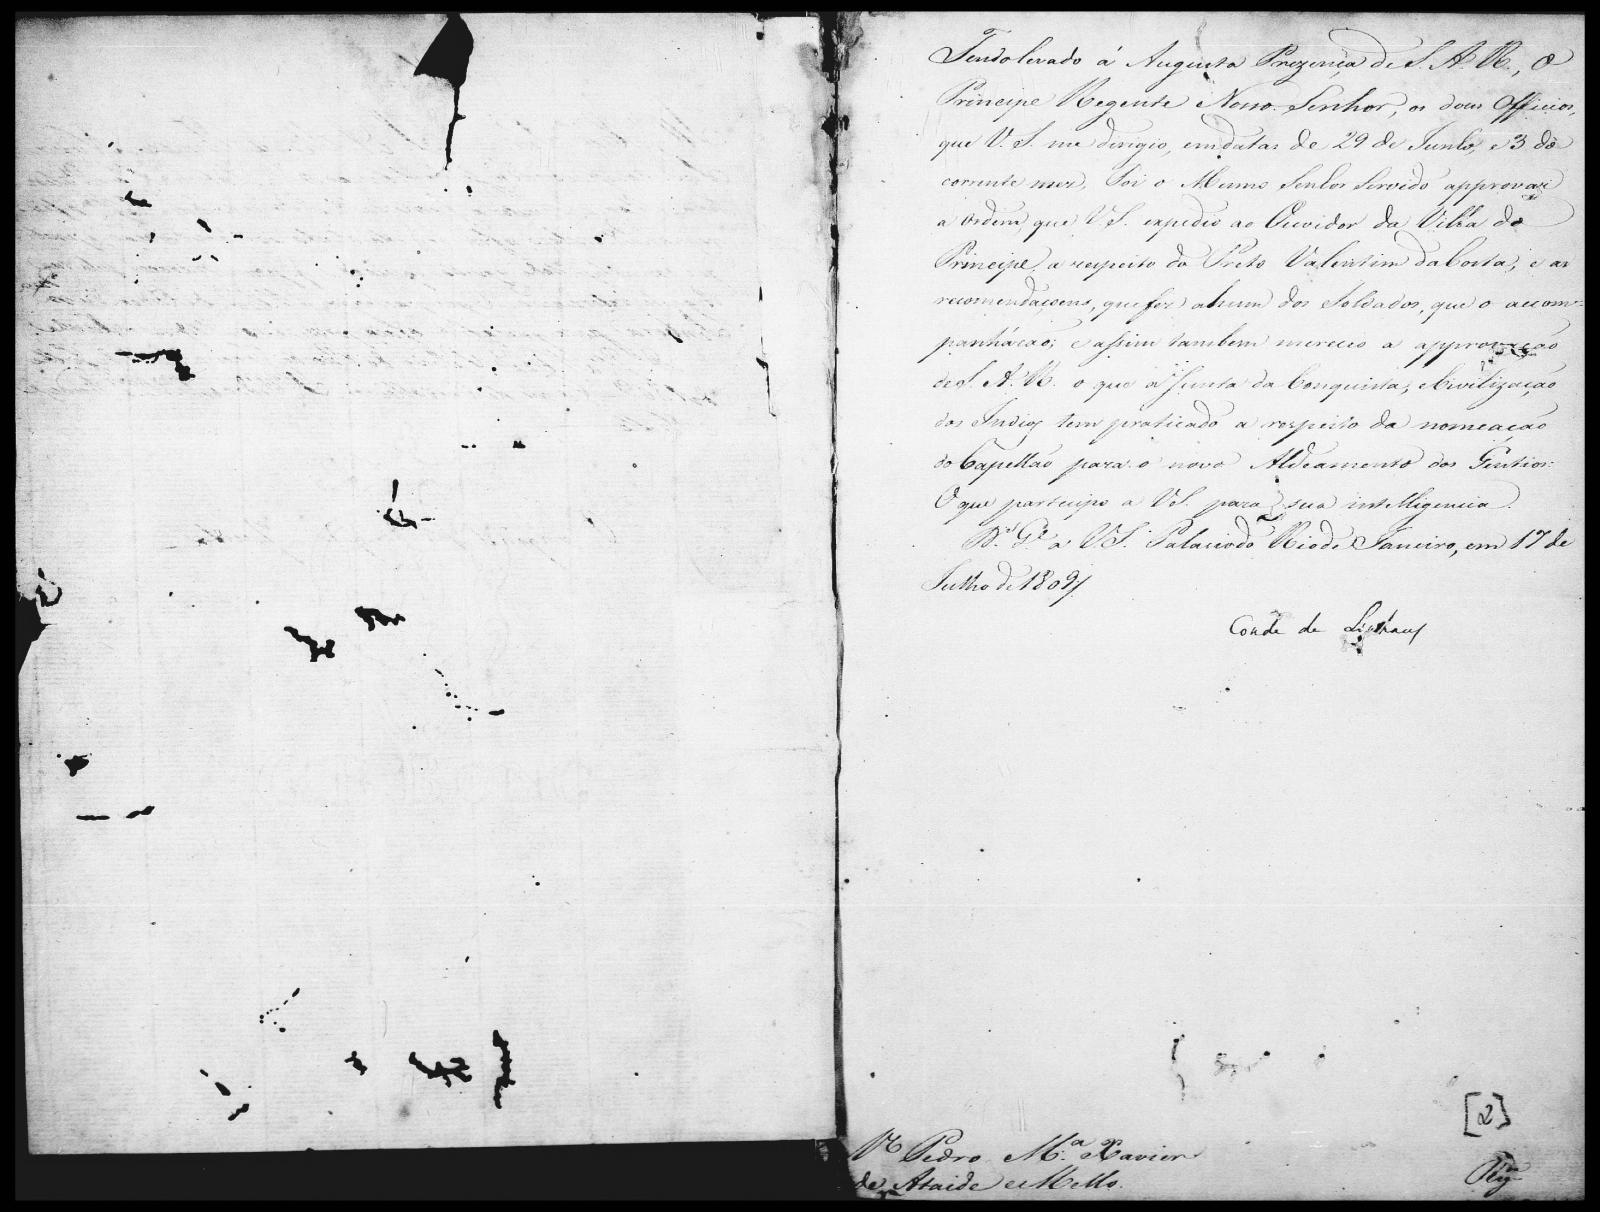 Tendo levado á Augusta Prezença de S. A. R., O
Principe Regente Nosso Senhor, os dous Officios,
que V. S. me dirigio, em datas de 29 de Junho, e 3 do
corrente mez, Foi o Mesmo Senhor Servido approvar
a ordem, que V. S. expedio ao Ouvidor da Villa do
Principe, a respeito do Preto Valentim da Costa, e as
recomendaçoens, que fez a hum dos Soldados, que o acom-
panháraõ; e assim tambem mereceo a approvaçaõ
de S. A. R. o que a Junta da Conquista, e Civilizaçaõ
dos Indios tem praticado a respeito da nomeaçaõ
do Capellaõ para o novo Aldeamento dos Gentios.
O que participo a V. S. para sua intelligencia.
D.s G.e a V. S. Palacio do Rio de Janeiro, em 17 de
Julho de 1809
Conde de Linhares
[2]
Pedro M.a Xavier
de Ataide e Mello.